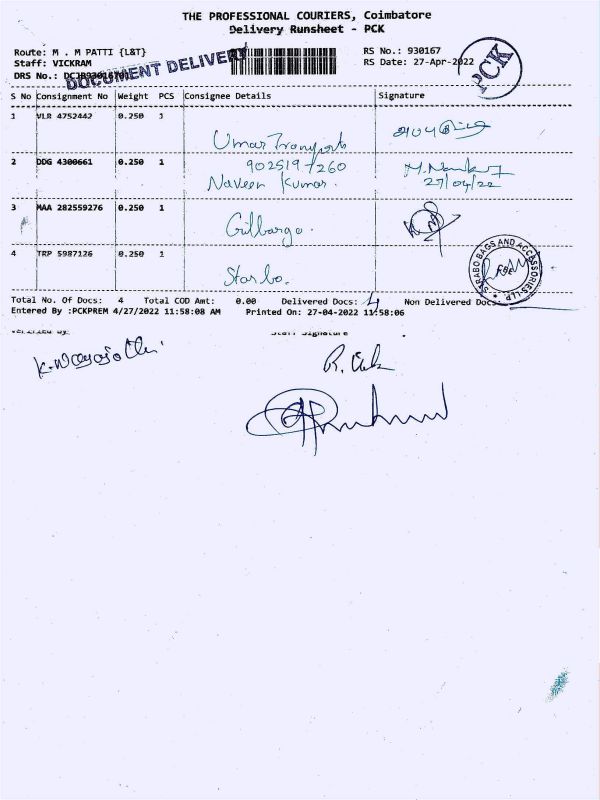 THE PROFESSIONAL COURIERS, Coimbatore
Delivery Runsheet - PCK
Route: M . M PATTI {L&T}
RS No.: 930167
Staff: VICKRAM
RS Date: 27-Apr-2022
PCK
DRS No.:
DOCUMENT DELIVERY
S No Consignment No Weight PCS Consignee Details Signature
1 VLR 4752442 0.250 1
Umar Transports
2 DDG 4300661 0.250 1 902519 7260
Naveen Kumar.
27/04/22
3 MAA 282559276 0.250 1
Gulbarga.
4 TRP 5987126 0.250 1
Starbo.
STARBO BAGS AND ACCESSORIES-LLP
Total No. Of Docs: 4 Total COD Amt: 0.00 Delivered Docs: 4 Non Delivered Docs
Entered By :PCKPREM 4/27/2022 11:58:08 AM Printed On: 27-04-2022 11:58:06
Verified By
Staff Signature